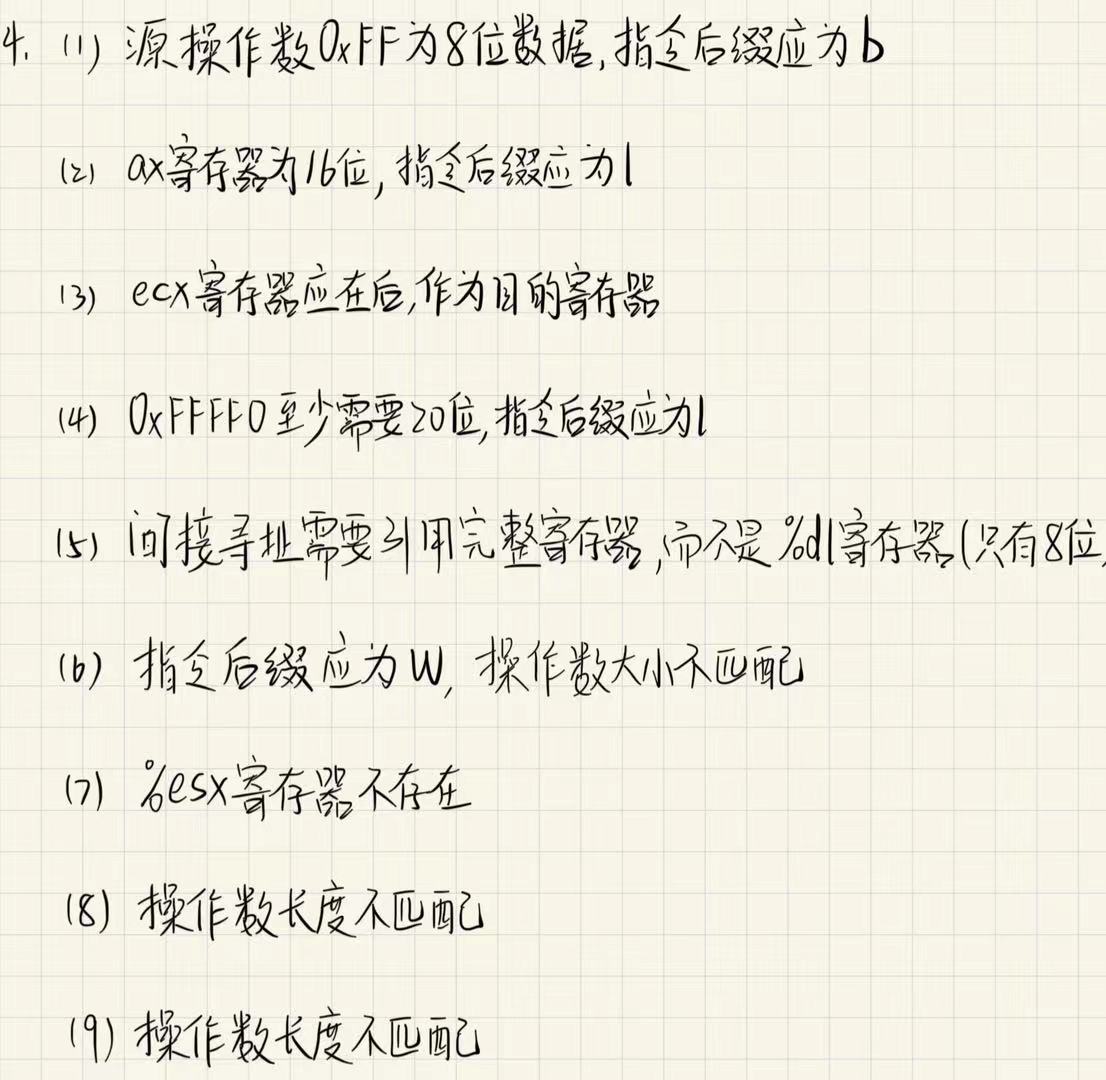 4. (1) 源操作数0xFF为8位数据,指令后缀应为b
(2) ax寄存器为16位,指令后缀应为l
(3) ecx寄存器应在后,作为目的寄存器
(4) 0xFFFF0至少需要20位,指令后缀应为l
(5) 间接寻址需要引用完整寄存器,而不是%dl寄存器(只有8位,
(6) 指令后缀应为W,操作数大小不匹配
(7) %esx寄存器不存在
(8) 操作数长度不匹配
(9) 操作数长度不匹配